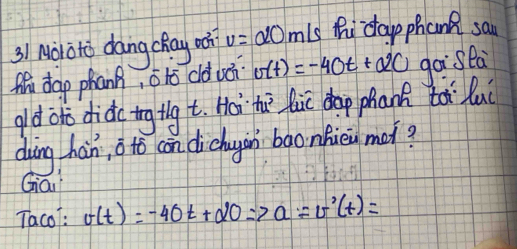 3) Một ôtô đang chạy với v = 20 m/s thì đạp phanh sau
khi đạp phanh, ô tô cđ với v(t) = -40t + 20 gọi S là
qđ ôtô đi đc trg tg t. Hỏi từ lúc đạp phanh tới lúc
dừng hẳn, ô tô còn di chuyển bao nhiêu mét?
Giải:
Ta có: v(t) = -40t + 20 => a = v'(t) =